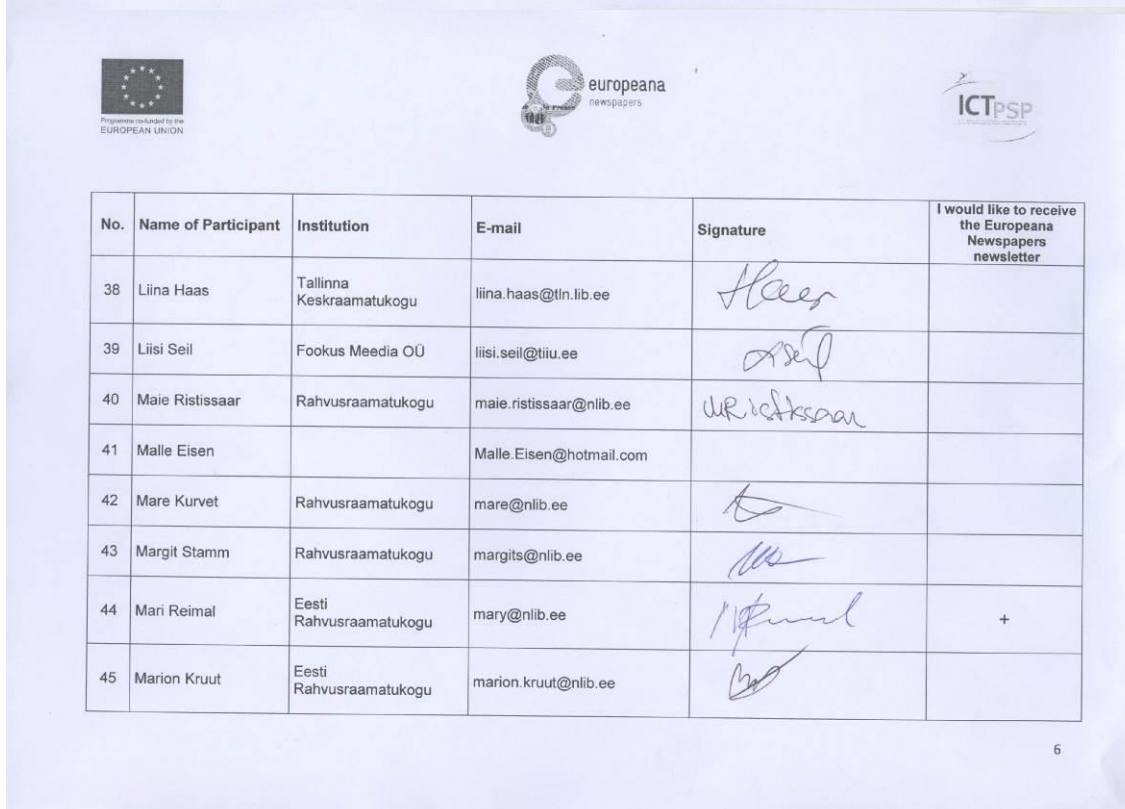 Programme co-funded by the
EUROPEAN UNION
europeana
newspapers
ICTPSP
No. Name of Participant Institution E-mail Signature I would like to receive
the Europeana
Newspapers
newsletter
38 Liina Haas Tallinna
Keskraamatukogu liina.haas@tln.lib.ee
39 Liisi Seil Fookus Meedia OÜ liisi.seil@tiiu.ee
40 Maie Ristissaar Rahvusraamatukogu maie.ristissaar@nlib.ee
41 Malle Eisen Malle.Eisen@hotmail.com
42 Mare Kurvet Rahvusraamatukogu mare@nlib.ee
43 Margit Stamm Rahvusraamatukogu margits@nlib.ee
44 Mari Reimal Eesti
Rahvusraamatukogu mary@nlib.ee +
45 Marion Kruut Eesti
Rahvusraamatukogu marion.kruut@nlib.ee
6